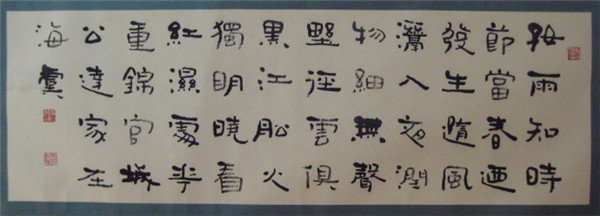 好雨知時
節當春迺
發生隨風
潛入夜潤
物細無聲
野徑雲俱
黑江船火
獨眀曉看
紅濕處花
重錦官城
公達家在
海虞